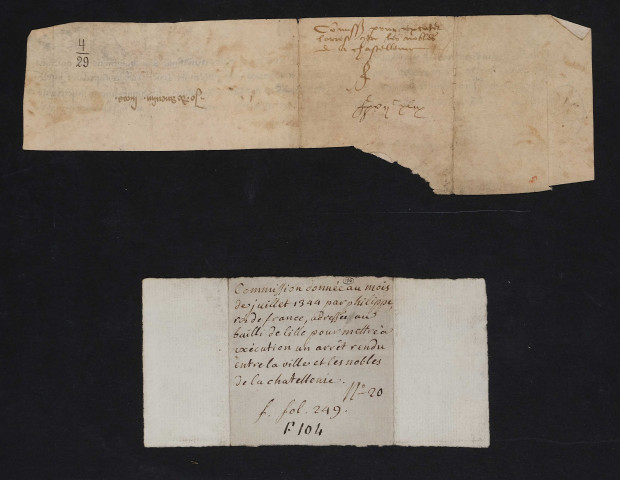 4
29
pour
les nobles
de la chastellenie
Commission donnée au mois
de juillet 1344 par philippe,
roi de france, adressée au
bailli de lille pour mettre à
exécution un arrêt rendu
entre la ville et les nobles
de la chatellenie.
N° 20
f. fol. 249.
F 104